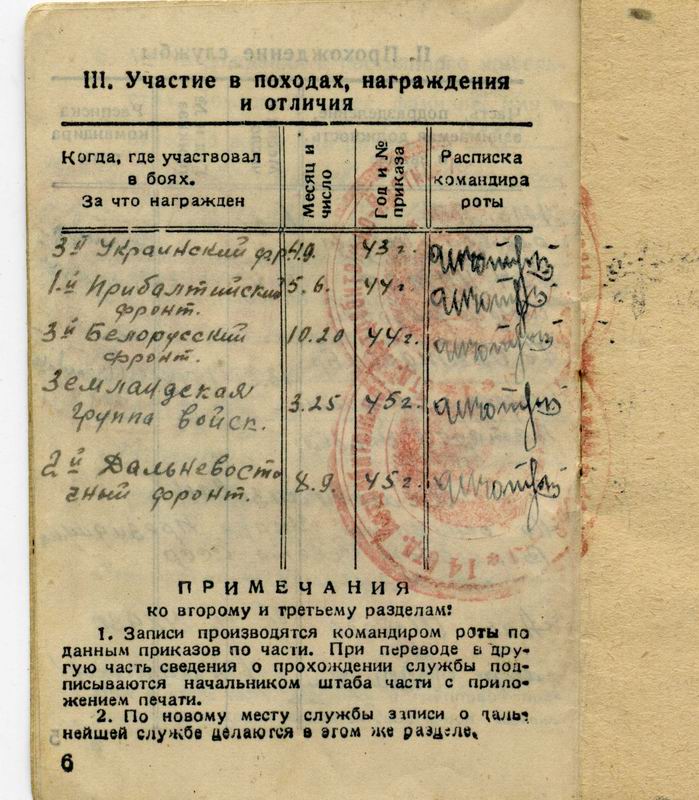 III. Участие в походах, награждения
и отличия
Когда, где участвовал
в боях.
За что награжден
Месяц и
число
Год и №
приказа
Расписка
командира
роты
3й Украинский фр. 4.9. 43 г.
1.й Прибалтийский 5.6. 44 г.
фронт.
3й Белорусский 10.20 44 г.
фронт.
Земландская
группа войск. 3.25 45 г.
2й Дальневосто
чный фронт. 8.9. 45 г.
ПРИМЕЧАНИЯ
ко второму и третьему разделам:
1. Записи производятся командиром роты по
данным приказов по части. При переводе в дру-
гую часть сведения о прохождении службы под-
писываются начальником штаба части с прило-
жением печати.
2. По новому месту службы записи о даль-
нейшей службе делаются в этом же разделе.
6